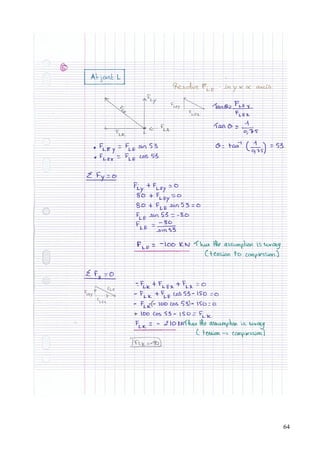 At joint L
Resolve F_LE in y x x axis
F_Ly
F_LE
F_LEy
F_LEx
Tan θ = F_LEy / F_LEx
F_LK
F_Lx
Tan θ = 1 / 0,75
• F_LEy = F_LE sin 53
θ = tan⁻¹ (1 / 0,75) = 53
• F_LEx = F_LE cos 53
Σ Fy = 0
F_Ly + F_LEy = 0
80 + F_LEy = 0
80 + F_LE sin 53 = 0
F_LE sin 53 = -80
F_LE = -80 / sin 53
F_LE = -100 KN Thus the assumption is wrong
(tension to compression)
Σ Fx = 0
F_LE
F_LEy
F_LEx
- F_LK + F_LEx + F_Lx = 0
- F_LK + F_LE cos 53 - 150 = 0
- F_LK (- 100 cos 53) - 150 = 0
+ 100 cos 53 - 150 = F_LK
F_LK = - 210 KN Thus the assumption is wrong
(tension → compression)
64